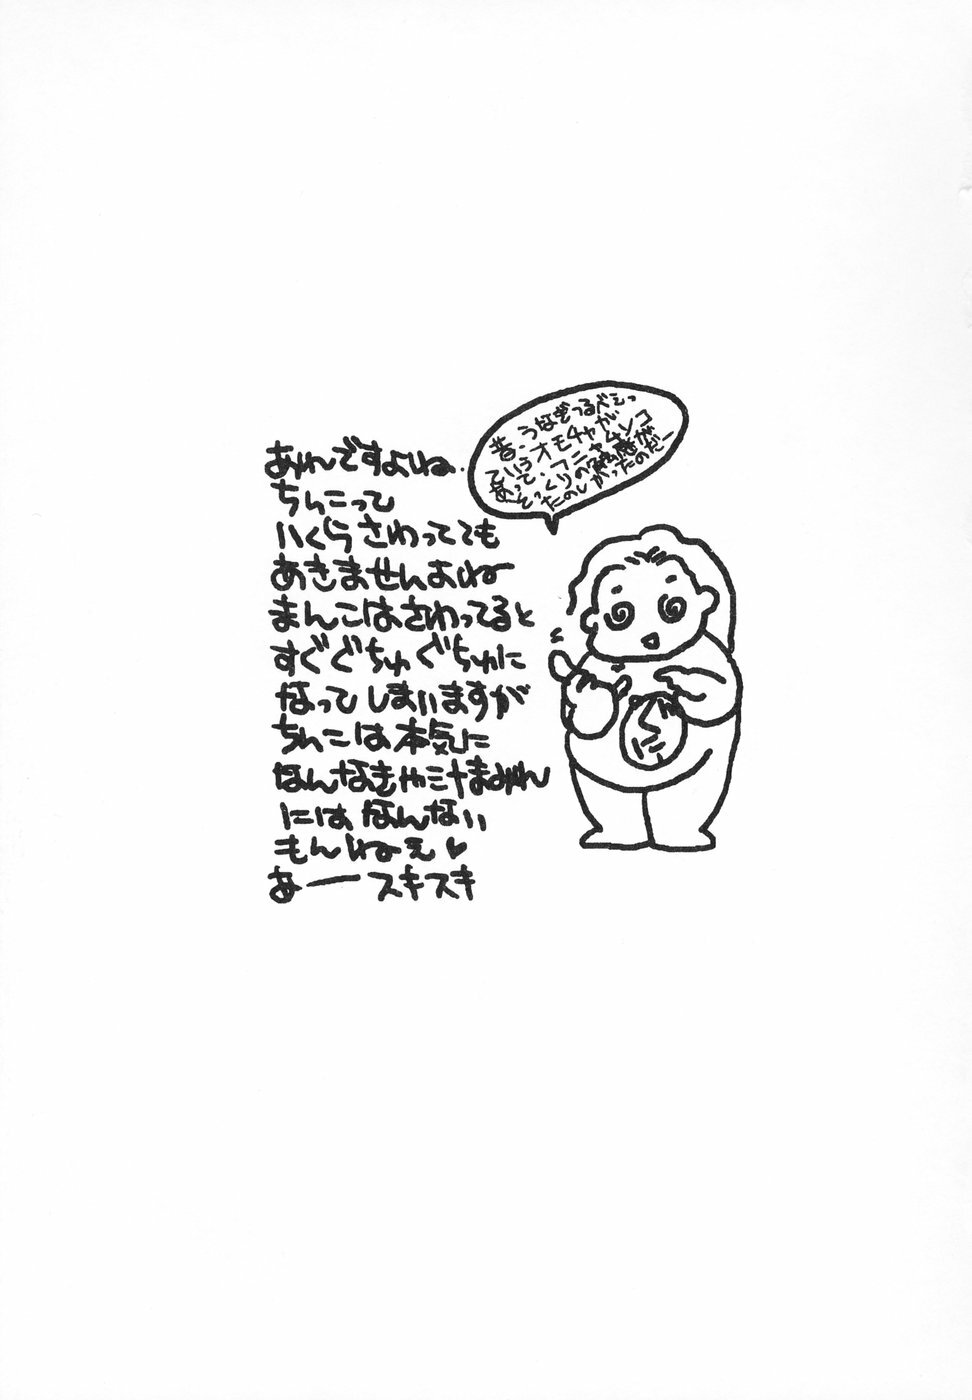 あれですよね..
ちんこって
いくらさわってても
あきませんよね
まんこはさわってると
すぐぐちゅぐちゅに
なってしまいますが
ちんこは本気に
なんなきゃ汁まみれ
にはなんない
もんねぇ♥
あーースキスキ
昔、うなぞつるべシっ
ていうオモチャが
あって、フニャムンコ
そっくりの触感が
たのしかったのだー